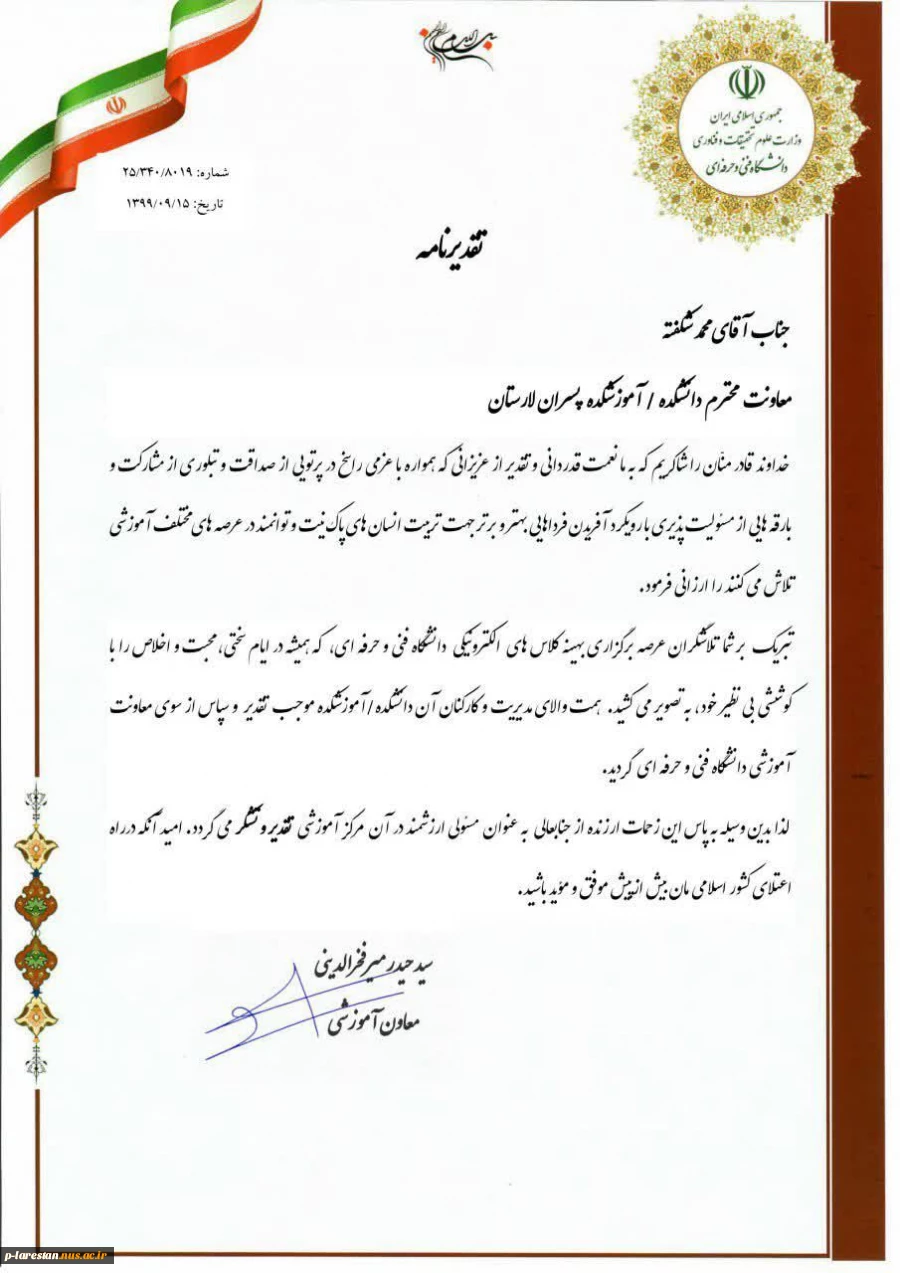 بسم الله الرحمن الرحیم
جمهوری اسلامی ایران
وزارت علوم تحقیقات و فناوری
دانشگاه فنی و حرفه‌ای
شماره: ۲۵/۳۴۰/۸۰۱۹
تاریخ: ۱۳۹۹/۰۹/۱۵
تقدیرنامه
جناب آقای محمد شکفته
معاونت محترم دانشکده / آموزشکده پسران لارستان
خداوند قادر منّان را شاکریم که به ما نعمت قدردانی و تقدیر از عزیزانی که همواره با عزمی راسخ در پرتویی از صداقت و تبلوری از مشارکت و
بارقه هایی از مسئولیت پذیری با رویکرد آفریدن فرداهایی بهتر و برتر جهت تربیت انسان های پاک نیت و توانمند در عرصه های مختلف آموزشی
تلاش می کنند را ارزانی فرمود.
تبریک بر شما تلاشگران عرصه برگزاری بهینه کلاس های الکترونیکی دانشگاه فنی و حرفه ای، که همیشه در ایام سختی، محبت و اخلاص را با
کوششی بی نظیر خود، به تصویر می کشید. همت والای مدیریت و کارکنان آن دانشکده/آموزشکده موجب تقدیر و سپاس از سوی معاونت
آموزشی دانشگاه فنی و حرفه ای گردید.
لذا بدین وسیله به پاس این زحمات ارزنده از جنابعالی به عنوان مسئولی ارزشمند در آن مرکز آموزشی تقدیر و تشکر می گردد. امید آنکه درراه
اعتلای کشور اسلامی مان بیش از پیش موفق و مؤید باشید.
سید حیدر میرفخرالدینی
معاون آموزشی
p-larestan.nus.ac.ir